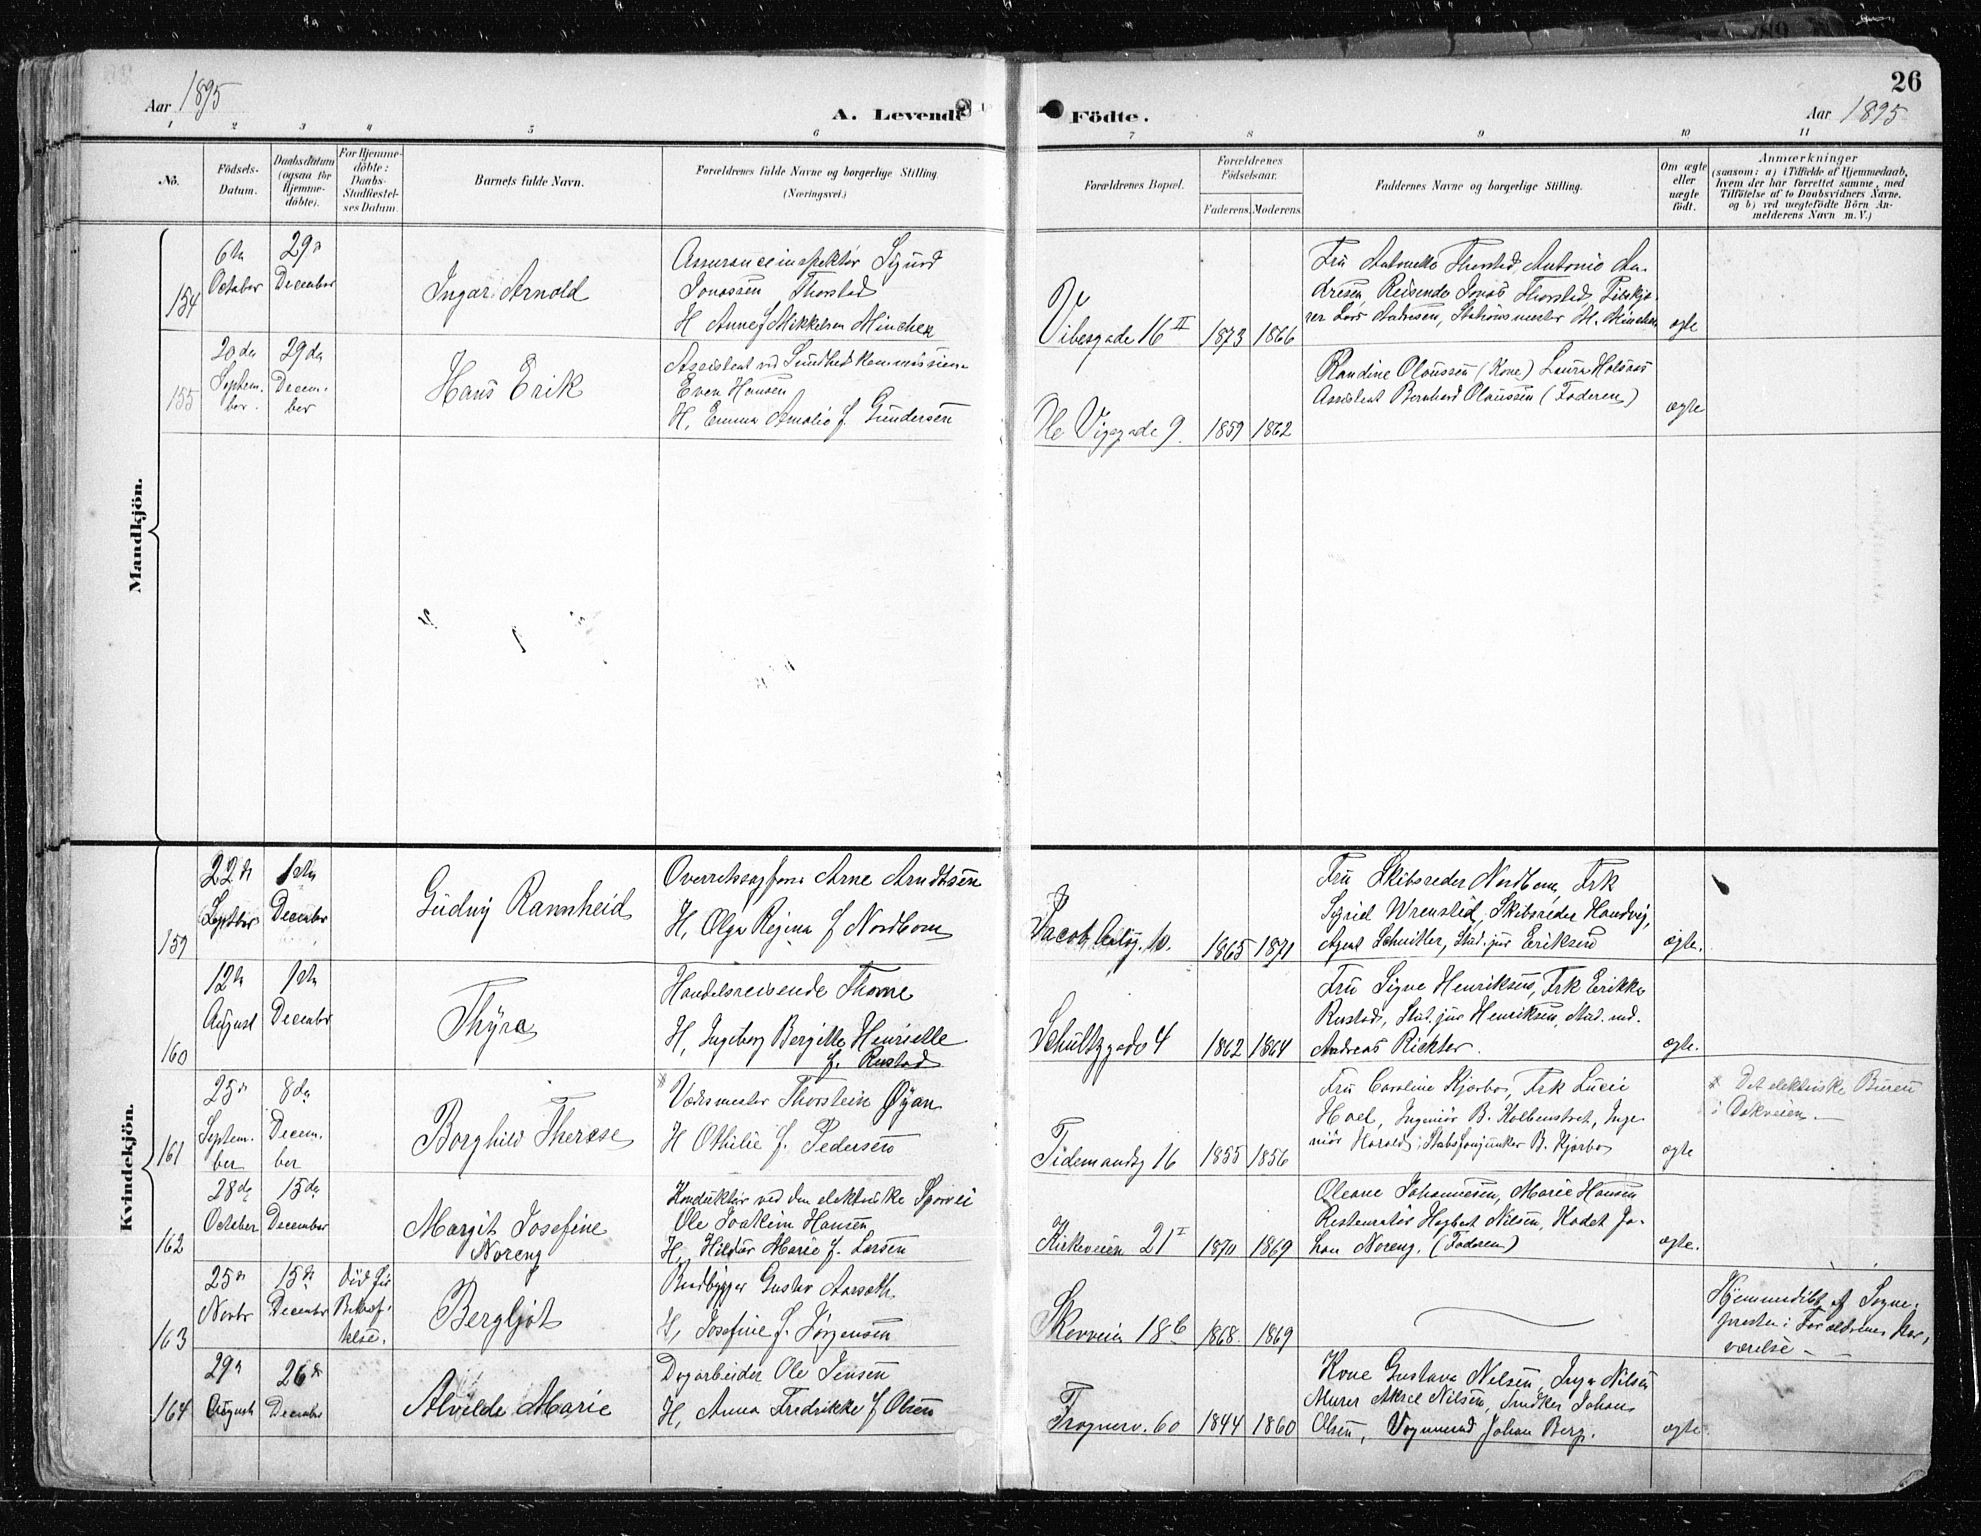 Aar 1895
A. Levende Födte.
Aar 1895
26
1 2 3 4 5 6 7 8 9 10 11
No.
Födsels-Datum.
Daabsdatum (ogsaa for Hjemmedöbte).
For Hjemmedöbte: Daabs-Stadfæstelses Datum.
Barnets fulde Navn.
Forældrenes fulde Navne og borgerlige Stilling (Næringsvei.)
Forældrenes Bopæl.
Forældrenes Födselsaar.
Faderens. Moderens.
Faddernes Navne og borgerlige Stilling.
Om ægte eller uægte födt.
Anmærkninger
(saasom: a) i Tilfælde af Hjemmedaab, hvem der har forrettet samme, med Tilföielse af to Daabsvidners Navne. og b) ved uægtefödte Börn Anmelderens Navn m. V.)
Mandkjön.
154
October
29
December
Ingar Arnold
Assuranceinspektør Sigurd
Jonassen Thorstad
H Anne f Mikkelsen München
Vibesgade 16 II
1873
1866
Fru Antonette Thorstad, Antonio An-
dresen, Reisende Jonas Thorstad, Filskjæ-
rer Lars Andresen, Stationsmester M. München
ægte
155
20de
Septem-
ber.
29de
Decem-
ber
Hans Erik
Assistent ved Sundhedskommissionen
Even Hansen
H, Emma Amalie f. Gundersen
Ole Vigsgade 9.
1859
1862
Randine Olaussen (Kone) Laura
Assistent Bernhard Olaussen (Faderen)
ægte
Kvindekjön.
159
22
Septbr
1ste
Decembr
Gudny Rannheid
Arne Arndtsen
H, Olga Regina f Nordbom
Jacob Aalsg. 10.
1865
1871
Fru Skibsreder Nordbom, Frk
Sigrid Wrensted, Skibsreder Handvig,
Agent Schnitler, Stud. jur Eriksen
ægte.
160
12te
August
1ste
Decembr
Thyra
Handelsreisende Thorne
H, Ingeborg Bergitte Henriette
f. Rustad
Schultzgade 4
1862
1864
Fru Signe Henriksen, Frk Erikke
Rustad, Stud. jur Henriksen, Stud. med.
Andreas Richter.
ægte.
161
25
Septem-
ber
8de
Decem-
ber
Borghild Therese
Thorstein Øyan
H Othilie f. Pedersen
Tidemandsg 16
1855
1856
Fru Caroline Kjørbo, Frk Lucie
Hoel, Ingeniør B. Kolbenstvet, Inge-
niør Harald, Stabsfanjunker B. Kjørbo
ægte
* Det elektriske Bureau
i Oskveien.
162
28de
October
15de
December
Margit Josefine
Noreng
Konduktør ved den elektriske Sporvei
Ole Joakim Hansen
H, Hildur Marie f. Larsen
Kirkeveien 21 I
1870
1869
Oleane Johannesen, Marie Hansen
Restauratør Hagbart Nilsen, Kadet Jo-
han Noreng. (Faderen)
ægte.
163
25
Novbr
15de
Decembr
Død før
Bekræf-
telse.
Bergljot
Gustav Aarseth
H, Josefine f. Jørgensen
Skovveien 18 b
1868.
1869
Hjemmedøbt af Sogne-
præsten i Forældrenes Nær-
værelse
164
29
August
26
Decembr
Alvilde Marie
Dagarbeider Ole Jensen
H, Anna Fredrikke f Olsen
Frognerv. 60
1844
1860
Kone Gustava Nilsen, Inga Nilsen
Murer Aksel Nilsen, Snedker Johan
Olsen, Vognmand Johan Berg.
ægte